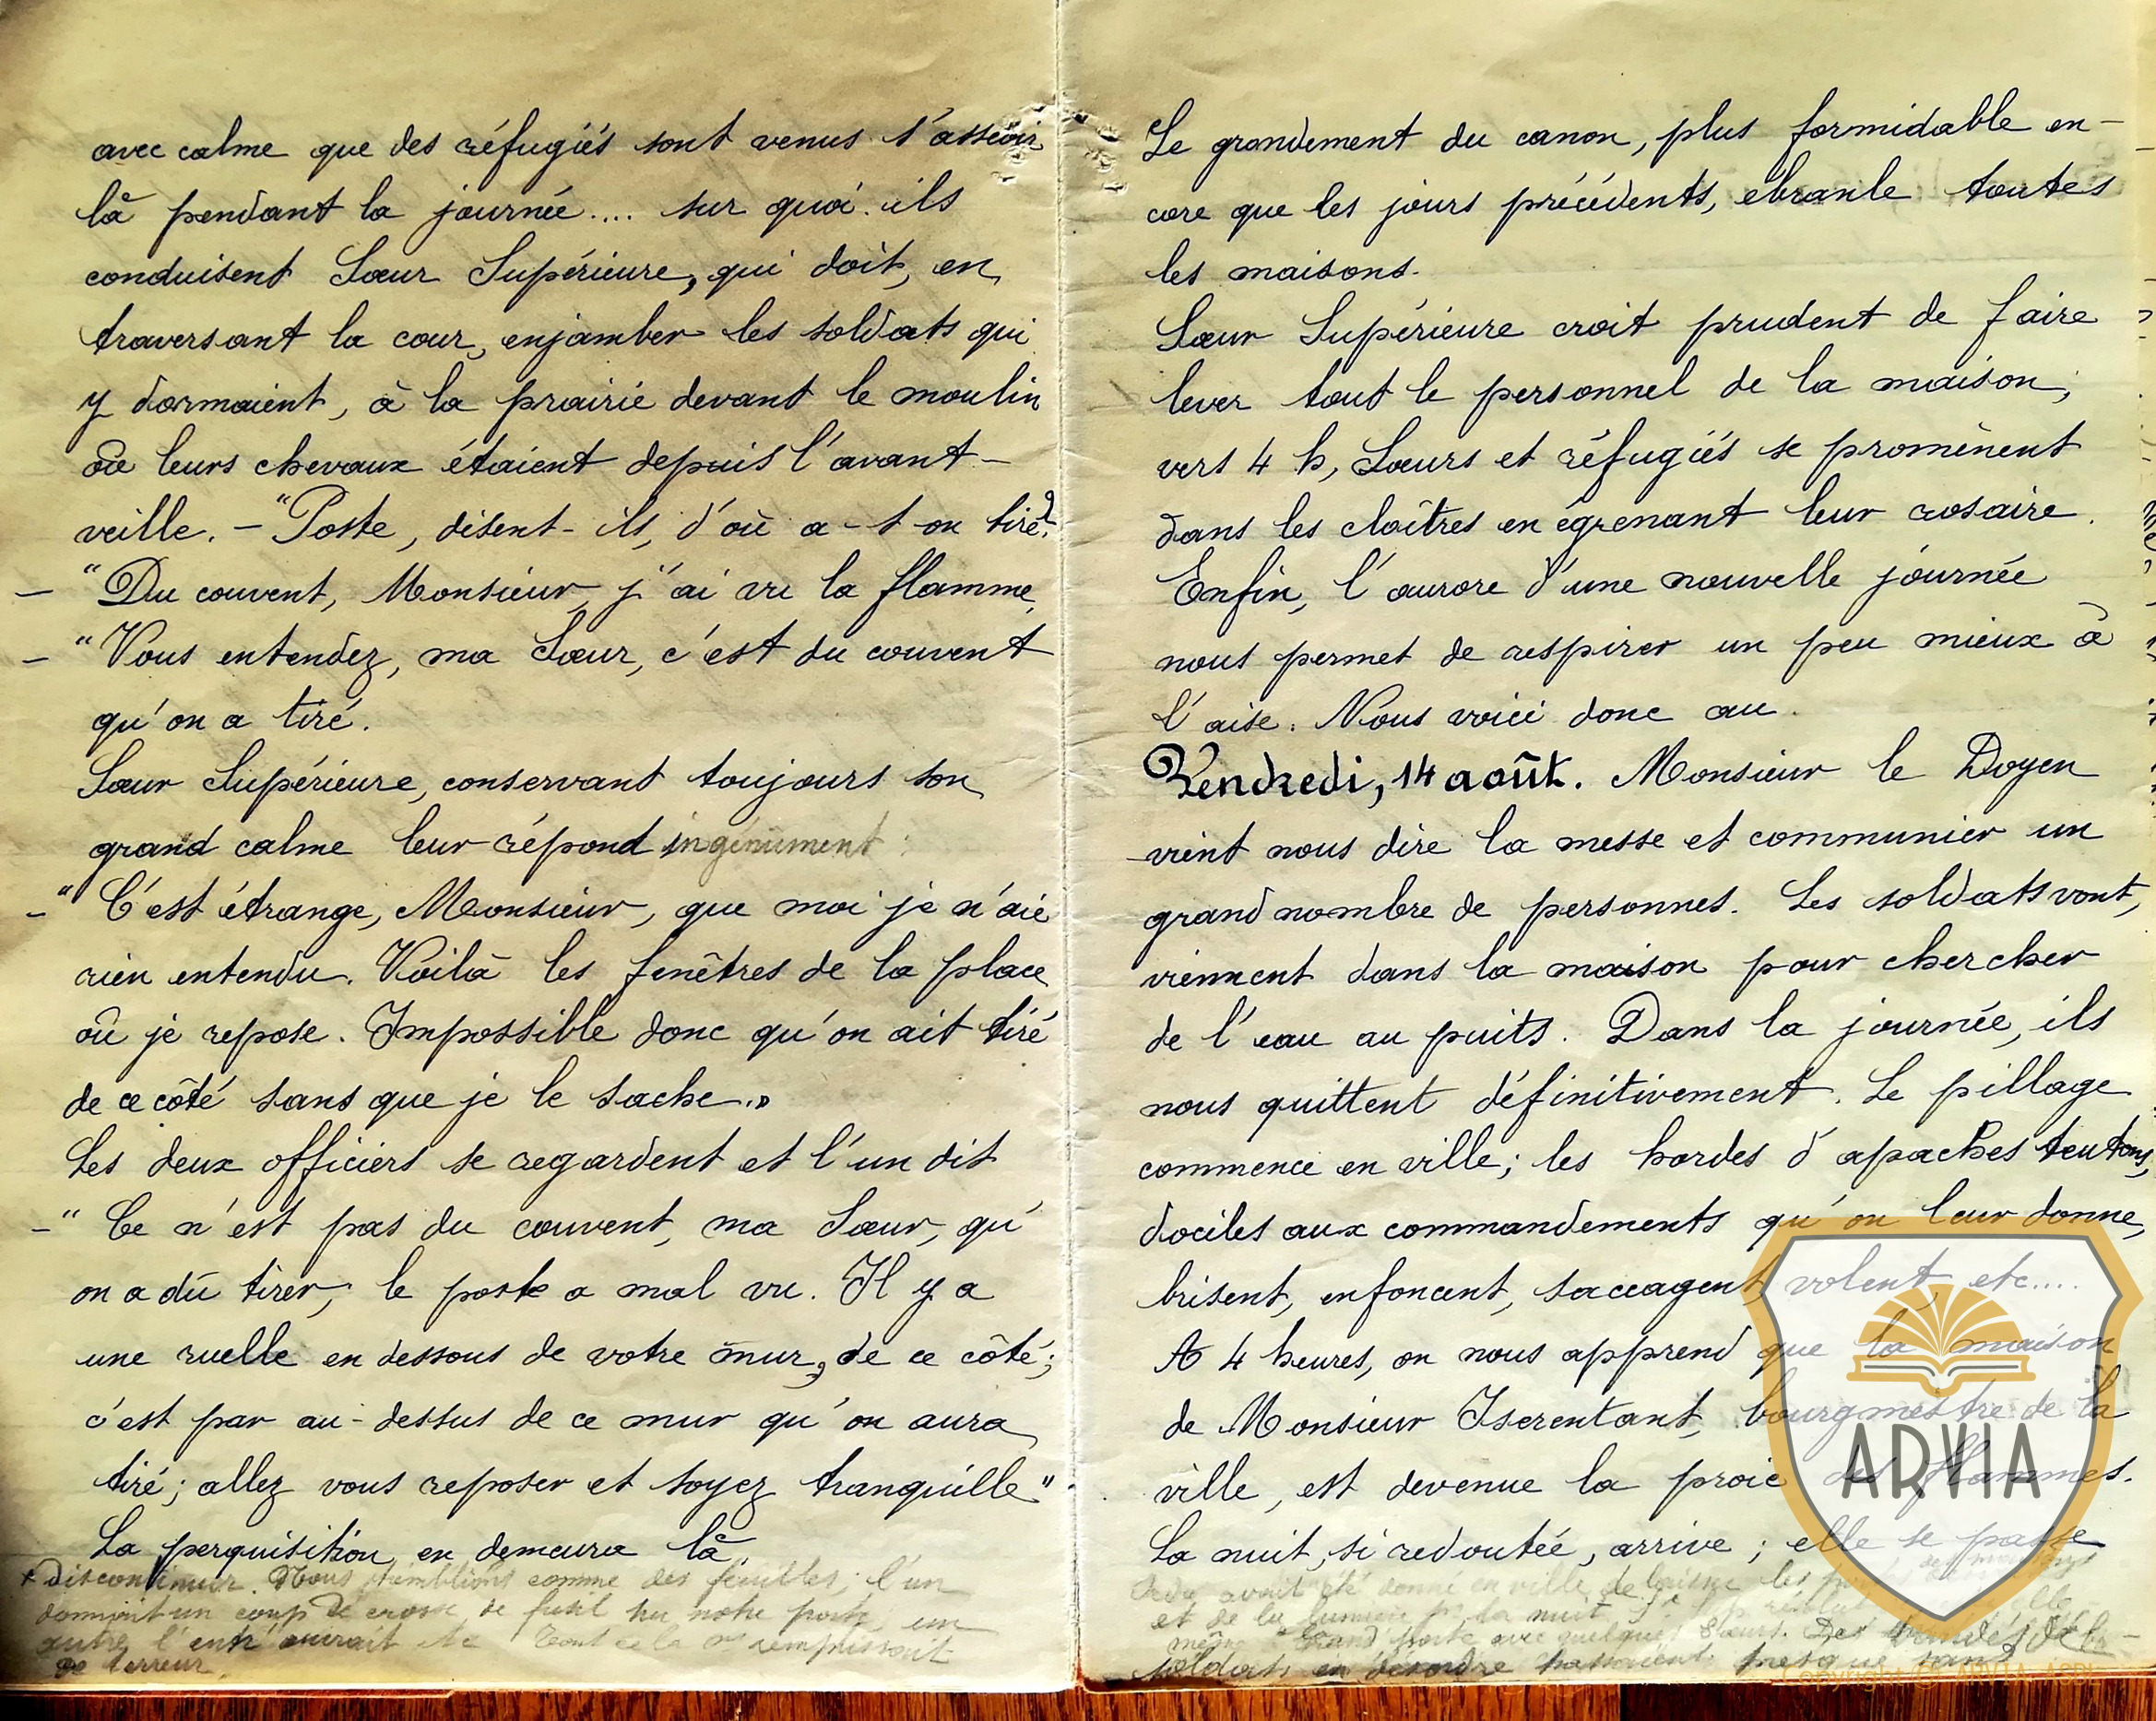 avec calme que des réfugiés sont venus s'asseoir
là pendant la journée.... sur quoi ils
conduisent Sœur Supérieure, qui doit, en
traversant la cour, enjamber les soldats qui
y dormaient, à la prairie devant le moulin
où leurs chevaux étaient depuis l'avant-
veille. – "Poste, disent-ils, d'où a-t-on tiré?
– "Du couvent, Monsieur, j'ai vu la flamme,
– "Vous entendez, ma Sœur, c'est du couvent
qu'on a tiré.
Sœur Supérieure, conservant toujours son
grand calme leur répond ingénument :
– "C'est étrange, Monsieur, que moi je n'aie
rien entendu. Voilà les fenêtres de la place
où je repose. Impossible donc qu'on ait tiré
de ce côté sans que je le sache.»
Les deux officiers se regardent et l'un dit
– "Ce n'est pas du couvent, ma Sœur, qu'
on a dû tirer; le poste a mal vu. Il y a
une ruelle en dessous de votre mur, de ce côté;
c'est par au-dessus de ce mur qu'on aura
tiré; allez vous reposer et soyez tranquille"
La perquisition en demeura là.
discontinuer. Nous tremblions comme des feuilles; l'un
donnait un coup de crosse de fusil sur notre porte, un
autre l'entr'ouvrait etc Tout cela ns remplissait
de terreur.
Le grondement du canon, plus formidable en-
core que les jours précédents, ebranle toutes
les maisons.
Sœur Supérieure croit prudent de faire
lever tout le personnel de la maison;
vers 4 h, Sœurs et réfugiés se promènent
dans les cloîtres en égrenant leur rosaire.
Enfin, l'aurore d'une nouvelle journée
nous permet de respirer un peu mieux à
l'aise. Nous voici donc au
Vendredi, 14 août. Monsieur le Doyen
vient nous dire la messe et communier un
grand nombre de personnes. Les soldats vont,
viennent dans la maison pour chercher
de l'eau au puits. Dans la journée, ils
nous quittent définitivement. Le pillage
commence en ville; les hordes d'apaches teutons,
dociles aux commandements qu'on leur donne,
brisent, enfoncent, saccagent, volent, etc....
A 4 heures, on nous apprend que la maison
de Monsieur Iserentant, bourgmestre de la
ville, est devenue la proie des flammes.
La nuit, si redoutée, arrive; elle se passe
Ordre avait été donné en ville de laisser les des maisons
et de la lumière pr la nuit
même grand'porte avec quelques Sœurs. Des bandes de
soldats en désordre passaient presque sans
ARVIA
Copyright © ARVIA